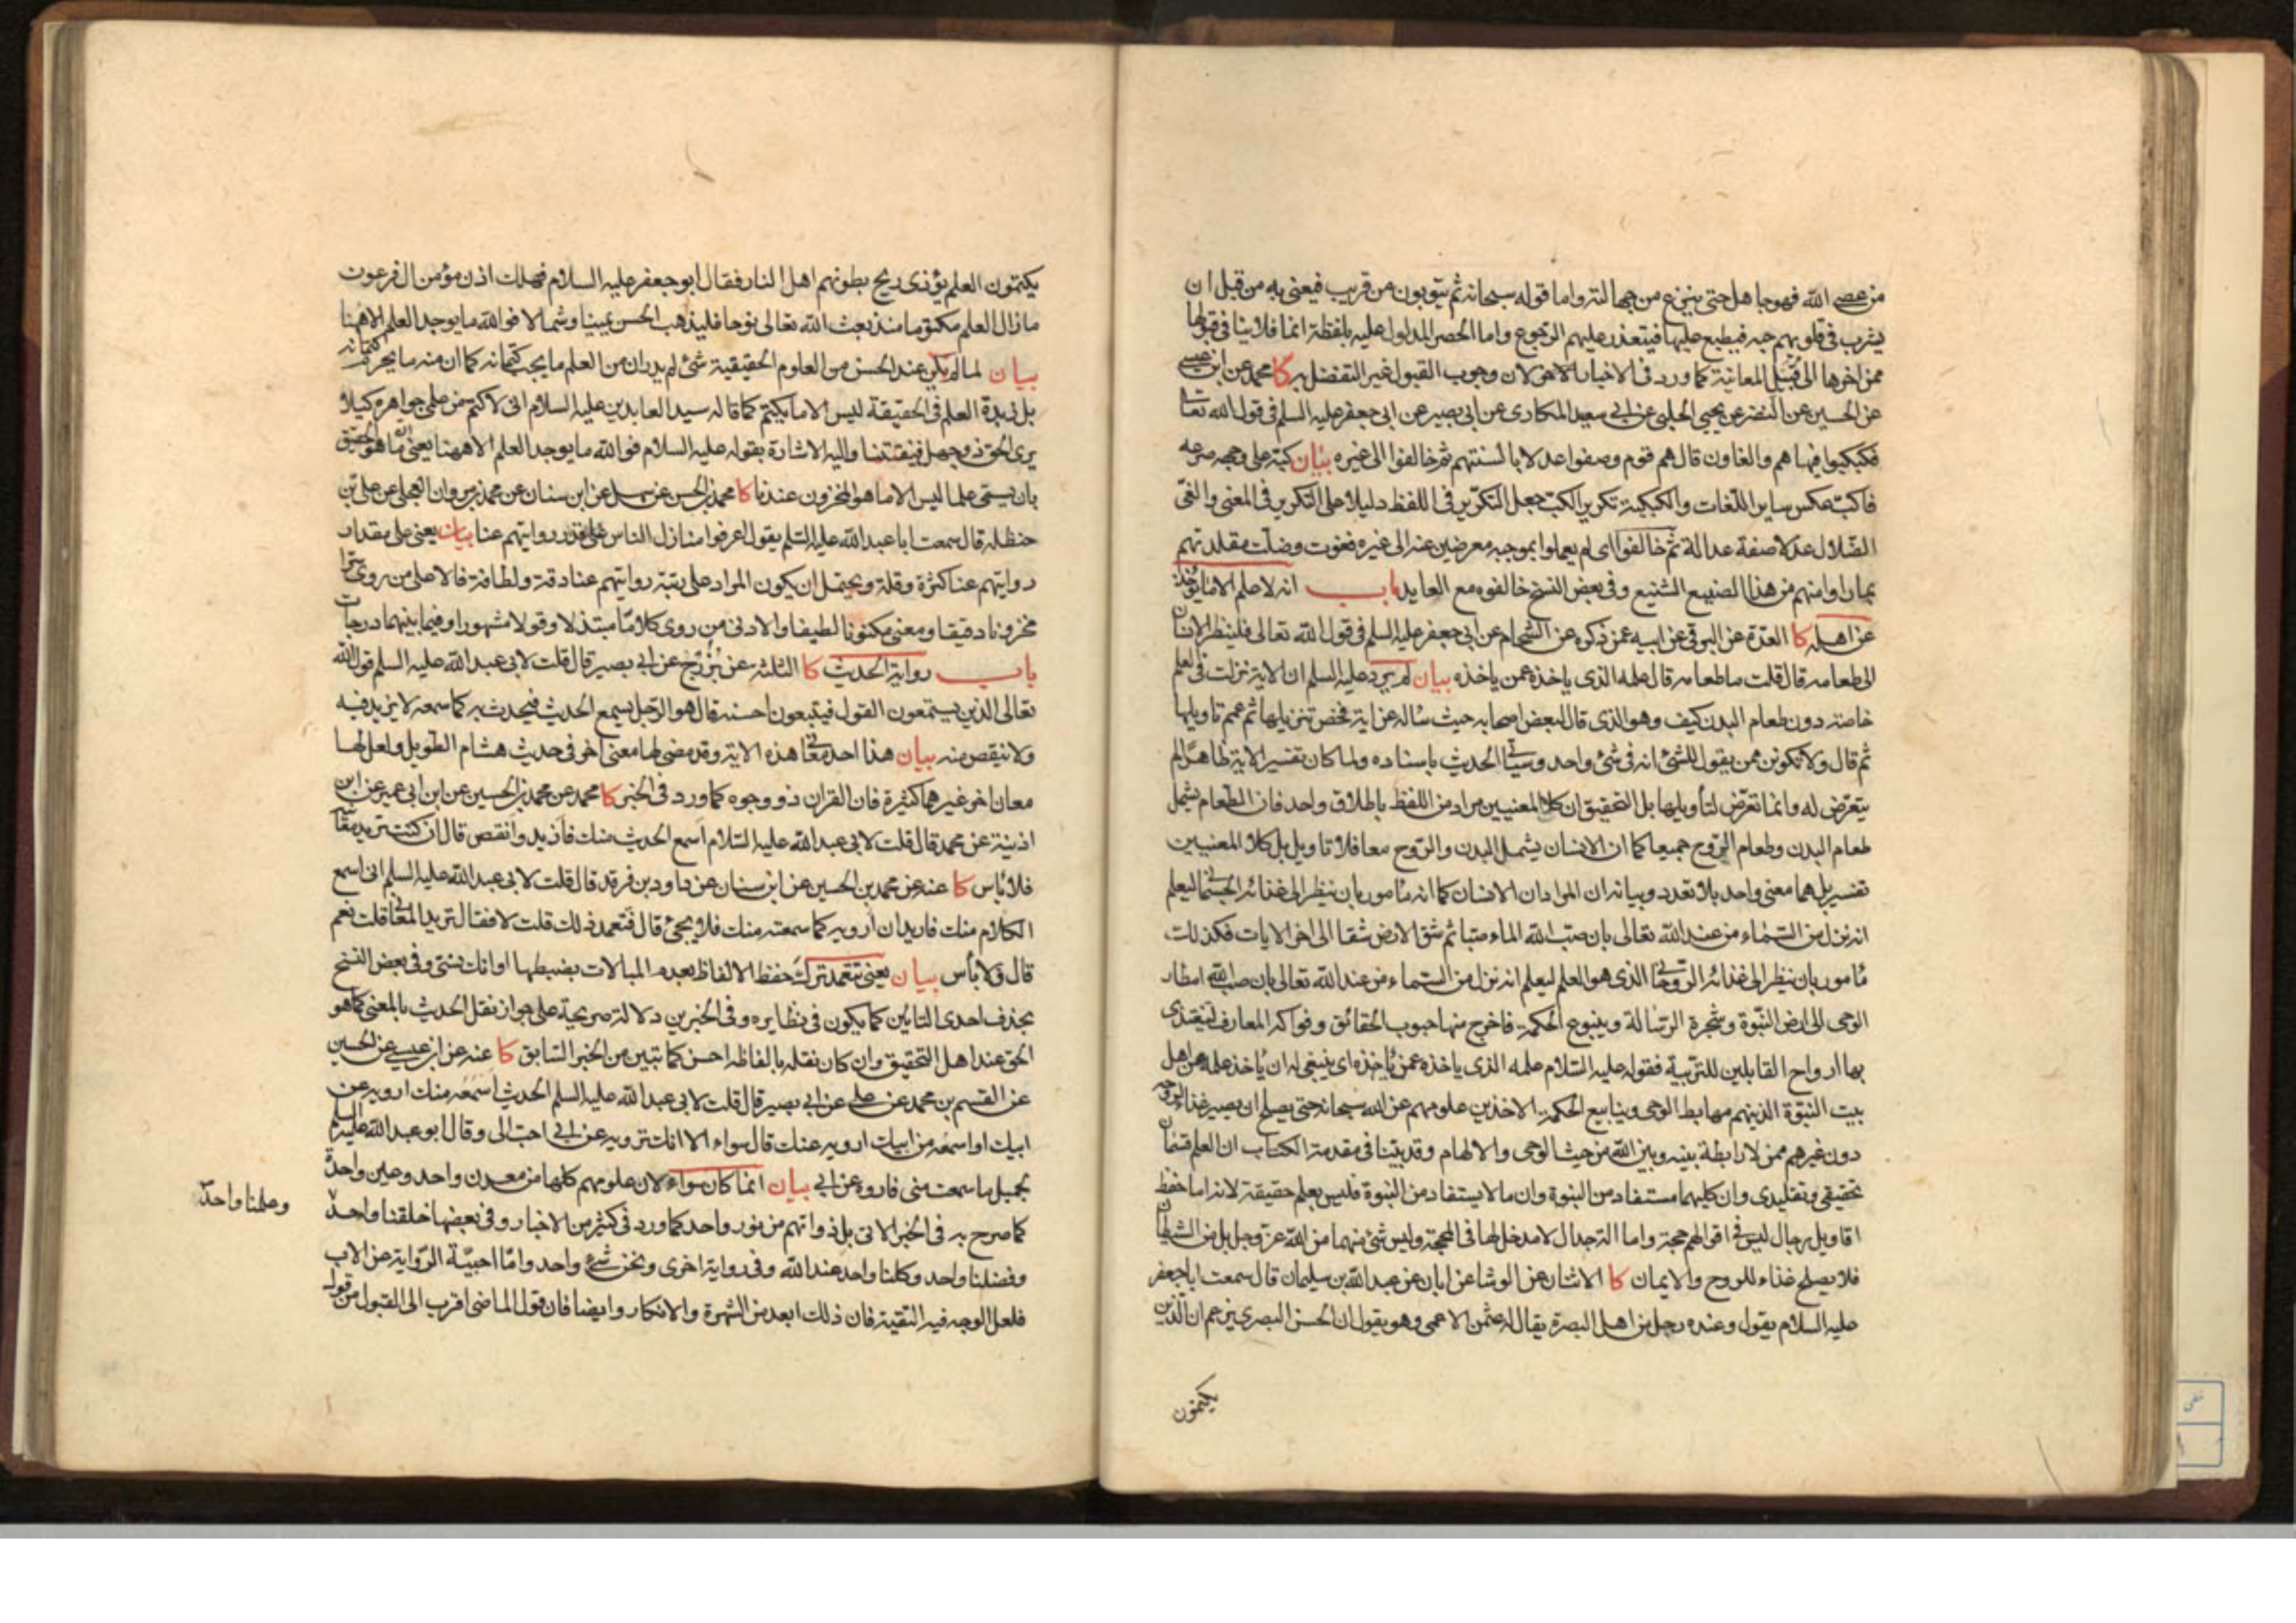 من عصى الله فهو جاهل حتى ينزع من جهالته واما قوله سبحانه ثم يتوبون من قريب فيعنى به من قبل ان
يشرب فى قلوبهم حبه فيطبع عليها فيتعذر عليهم الرجوع واما الحصر المدلول عليه بلفظة انما فلا ينافى قبولها
ممن اخرها الى قبيل المعاينة كما ورد فى الاخبار الاخر لان وجوب القبول غير التفضل به كا محمد عن ابن عيسى
عن الحسين عن النضر عن يحيى الحلبى عن ابى سعيد المكارى عن ابى بصير عن ابى جعفر عليه السلم فى قول الله تعالى
فكبكبوا فيها هم والغاون قال هم قوم وصفوا عدلا بالسنتهم ثم خالفوا الى غيره بيان كبه على وجهه صرعه
فاكب عكس ساير اللغات والكبكبة تكرير الكب جعل التكرير فى اللفظ دليلا على التكرير فى المعنى والغى
الضلال عدلا صفة عدالة ثم خالفوا اى لم يعملوا بموجبه معرضين عنه الى غيره فغوت وضلت مقلدتهم
بما راوا منهم من هذا الصنيع الشنيع وفى بعض النسخ خالفوه مع العايد باب انه لا علم الا ما يؤخذ
عن اهله كا العدة عن البرقى عن ابيه عمن ذكره عن الشحام عن ابى جعفر عليه السلم فى قول الله تعالى فلينظر الانسان
الى طعامه قال قلت ما طعامه قال علمه الذى ياخذه عمن ياخذه بيان لم يرد عليه السلم ان الاية نزلت فى العلم
خاصة دون طعام البدن كيف وهو الذى قال لبعض اصحابه حيث ساله عن اية فخص تنزيلها ثم عمم تاويلها
ثم قال ولا تكونن ممن يقول للشئ انه فى شئ واحد وسياتى الحديث باسناده ولما كان تفسير الاية ظاهرا لم
يتعرض له وانما تعرض لتأويلها بل التحقيق ان كلا المعنيين مراد من اللفظ باطلاق واحد فان الطعام يشمل
طعام البدن وطعام الروح جميعا كما ان الانسان يشمل البدن والروح معا فلا تاويل بل كلا المعنيين
تفسير بل هما معنى واحد بلا تعدد وبيانه ان المراد ان الانسان كما انه مأمور بان ينظر الى غذائه الجسمانى ليعلم
انه نزل من السماء من عند الله تعالى بان صب الله الماء صبا ثم شق الارض شقا الى اخر الايات فكذلك
مأمور بان ينظر الى غذائه الروحانى الذى هو العلم ليعلم انه نزل من السماء من عند الله تعالى بان صب الله امطار
الوحى الى ارض النبوة وشجرة الرسالة وينبوع الحكمة فاخرج منها حبوب الحقائق وفواكه المعارف لتغتذى
بها ارواح القابلين للتربية فقوله عليه السلام علمه الذى ياخذه عمن يأخذه اى ينبغى له ان يأخذ علمه عن اهل
بيت النبوة الذين هم مهابط الوحى وينابيع الحكمة الاخذين علومهم عن الله سبحانه حتى يصلح ان يصير غذاء لروحه
دون غيرهم ممن لا رابطة بينه وبين الله من حيث الوحى والالهام وقد بينا فى مقدمة الكتاب ان العلم قسمان
تحقيقى وتقليدى وان كليهما مستفاد من النبوة وان ما لا يستفاد من النبوة فليس بعلم حقيقة لانه اما حفظ
اقاويل رجال ليس فى اقوالهم حجة واما الة جدال لا مدخل لها فى المحجة وليس شئ منهما من الله عز وجل بل من الشيطان
فلا يصلح غذاء للروح والايمان كا الاثنان عن الوشا عن ابان عن عبد الله بن سليمان قال سمعت ابا جعفر
عليه السلام يقول وعنده رجل من اهل البصرة يقال له عثمن الاعمى وهو يقول ان الحسن البصرى يزعم ان الذين
يكتمون
يكتمون العلم يؤذى ريح بطونهم اهل النار فقال ابو جعفر عليه السلام فهلك اذن مؤمن ال فرعون
ما زال العلم مكتوما منذ بعث الله تعالى نوحا فليذهب الحسن يمينا وشمالا فوالله ما يوجد العلم الا ههنا
بيان لما لم يكن عند الحسن من العلوم الحقيقية شئ لم يدر ان من العلم ما يجب كتمانه كما ان منه ما يحرم كتمانه
بل زبدة العلم فى الحقيقة ليس الا ما يكتم كما قاله سيد العابدين عليه السلام انى لاكتم من علمى جواهره كيلا
يرى الحق ذو جهل فيفتتنا واليه الاشارة بقوله عليه السلام فوالله ما يوجد العلم الا ههنا يعنى ان ما هو حقيق
بان يسمى علما ليس الا ما هو المخزون عندنا كا محمد بن الحسن عن سهل عن ابن سنان عن محمد بن مروان العجلى عن على بن
حنظله قال سمعت ابا عبد الله عليه السلم يقول اعرفوا منازل الناس على قدر روايتهم عنا بيان يعنى على مقدار
روايتهم عنا كثرة وقلة ويحتمل ان يكون المراد على رتبة روايتهم عنا دقة ولطافة فالاعلى من روى سرا
مخزونا دقيقا ومعنى مكنونا لطيفا والادنى من روى كلاما مبتذلا وقولا مشهورا وفيما بينهما درجات
باب رواية الحديث كا الثلثة عن بزرج عن ابى بصير قال قلت لابى عبد الله عليه السلم قول الله
تعالى الذين يستمعون القول فيتبعون احسنه قال هو الرجل يسمع الحديث فيحدث به كما سمعه لا يزيد فيه
ولا ينقص منه بيان هذا احد معانى هذه الاية وقد مضى لها معنى اخر فى حديث هشام الطويل ولعل لها
معان اخر غيرهما كثيرة فان القران ذو وجوه كما ورد فى الخبر كا محمد عن محمد بن الحسين عن ابن ابى عمير عن ابن
اذينة عن محمد قال قلت لابى عبد الله عليه السلام اسمع الحديث منك فازيد وانقص قال ان كنت تريد معانيه
فلا بأس كا عنه عن محمد بن الحسين عن ابن سنان عن داود بن فرقد قال قلت لابى عبد الله عليه السلم انى اسمع
الكلام منك فاريد ان ارويه كما سمعته منك فلا يجئ قال فتعمد ذلك قلت لا فقال تريد المعانى قلت نعم
قال فلا بأس بيان يعنى تتعمد ترك حفظ الالفاظ بعدم المبالات بضبطها او انك تنسى وفى بعض النسخ
بحذف احدى التاين كما يكون فى نظايره وفى الخبرين دلالة صريحة على جواز نقل الحديث بالمعنى كما هو
الحق عند اهل التحقيق وان كان نقله بالفاظه احسن كما تبين من الخبر السابق كا عنه عن ابن عيسى عن الحسين
عن القسم بن محمد عن على عن ابى بصير قال قلت لابى عبد الله عليه السلم الحديث اسمعه منك ارويه عن
ابيك او اسمعه من ابيك ارويه عنك قال سواء الا انك ترويه عن ابى احب الى وقال ابو عبد الله عليه السلم
لجميل ما سمعت منى فاروه عن ابى بيان انما كان سواء لان علومهم كلها من معدن واحد وعين واحدة
كما صرح به فى الخبر الاتى بل ذواتهم من نور واحد كما ورد فى كثير من الاخبار وفى بعضها خلقنا واحد
وعلمنا واحد
وفضلنا واحد وكلنا واحد عند الله وفى رواية اخرى ونحن شئ واحد واما احبية الرواية عن الاب
فلعل الوجه فيه التقية فان ذلك ابعد من الشهرة والانكار وايضا فان قول الماضى اقرب الى القبول من قول